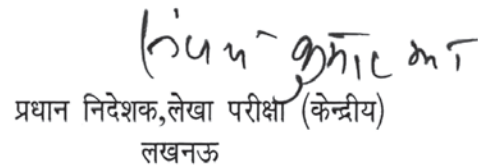 कुमार झा
प्रधान निदेशक,लेखा परीक्षा (केन्द्रीय)
लखनऊ